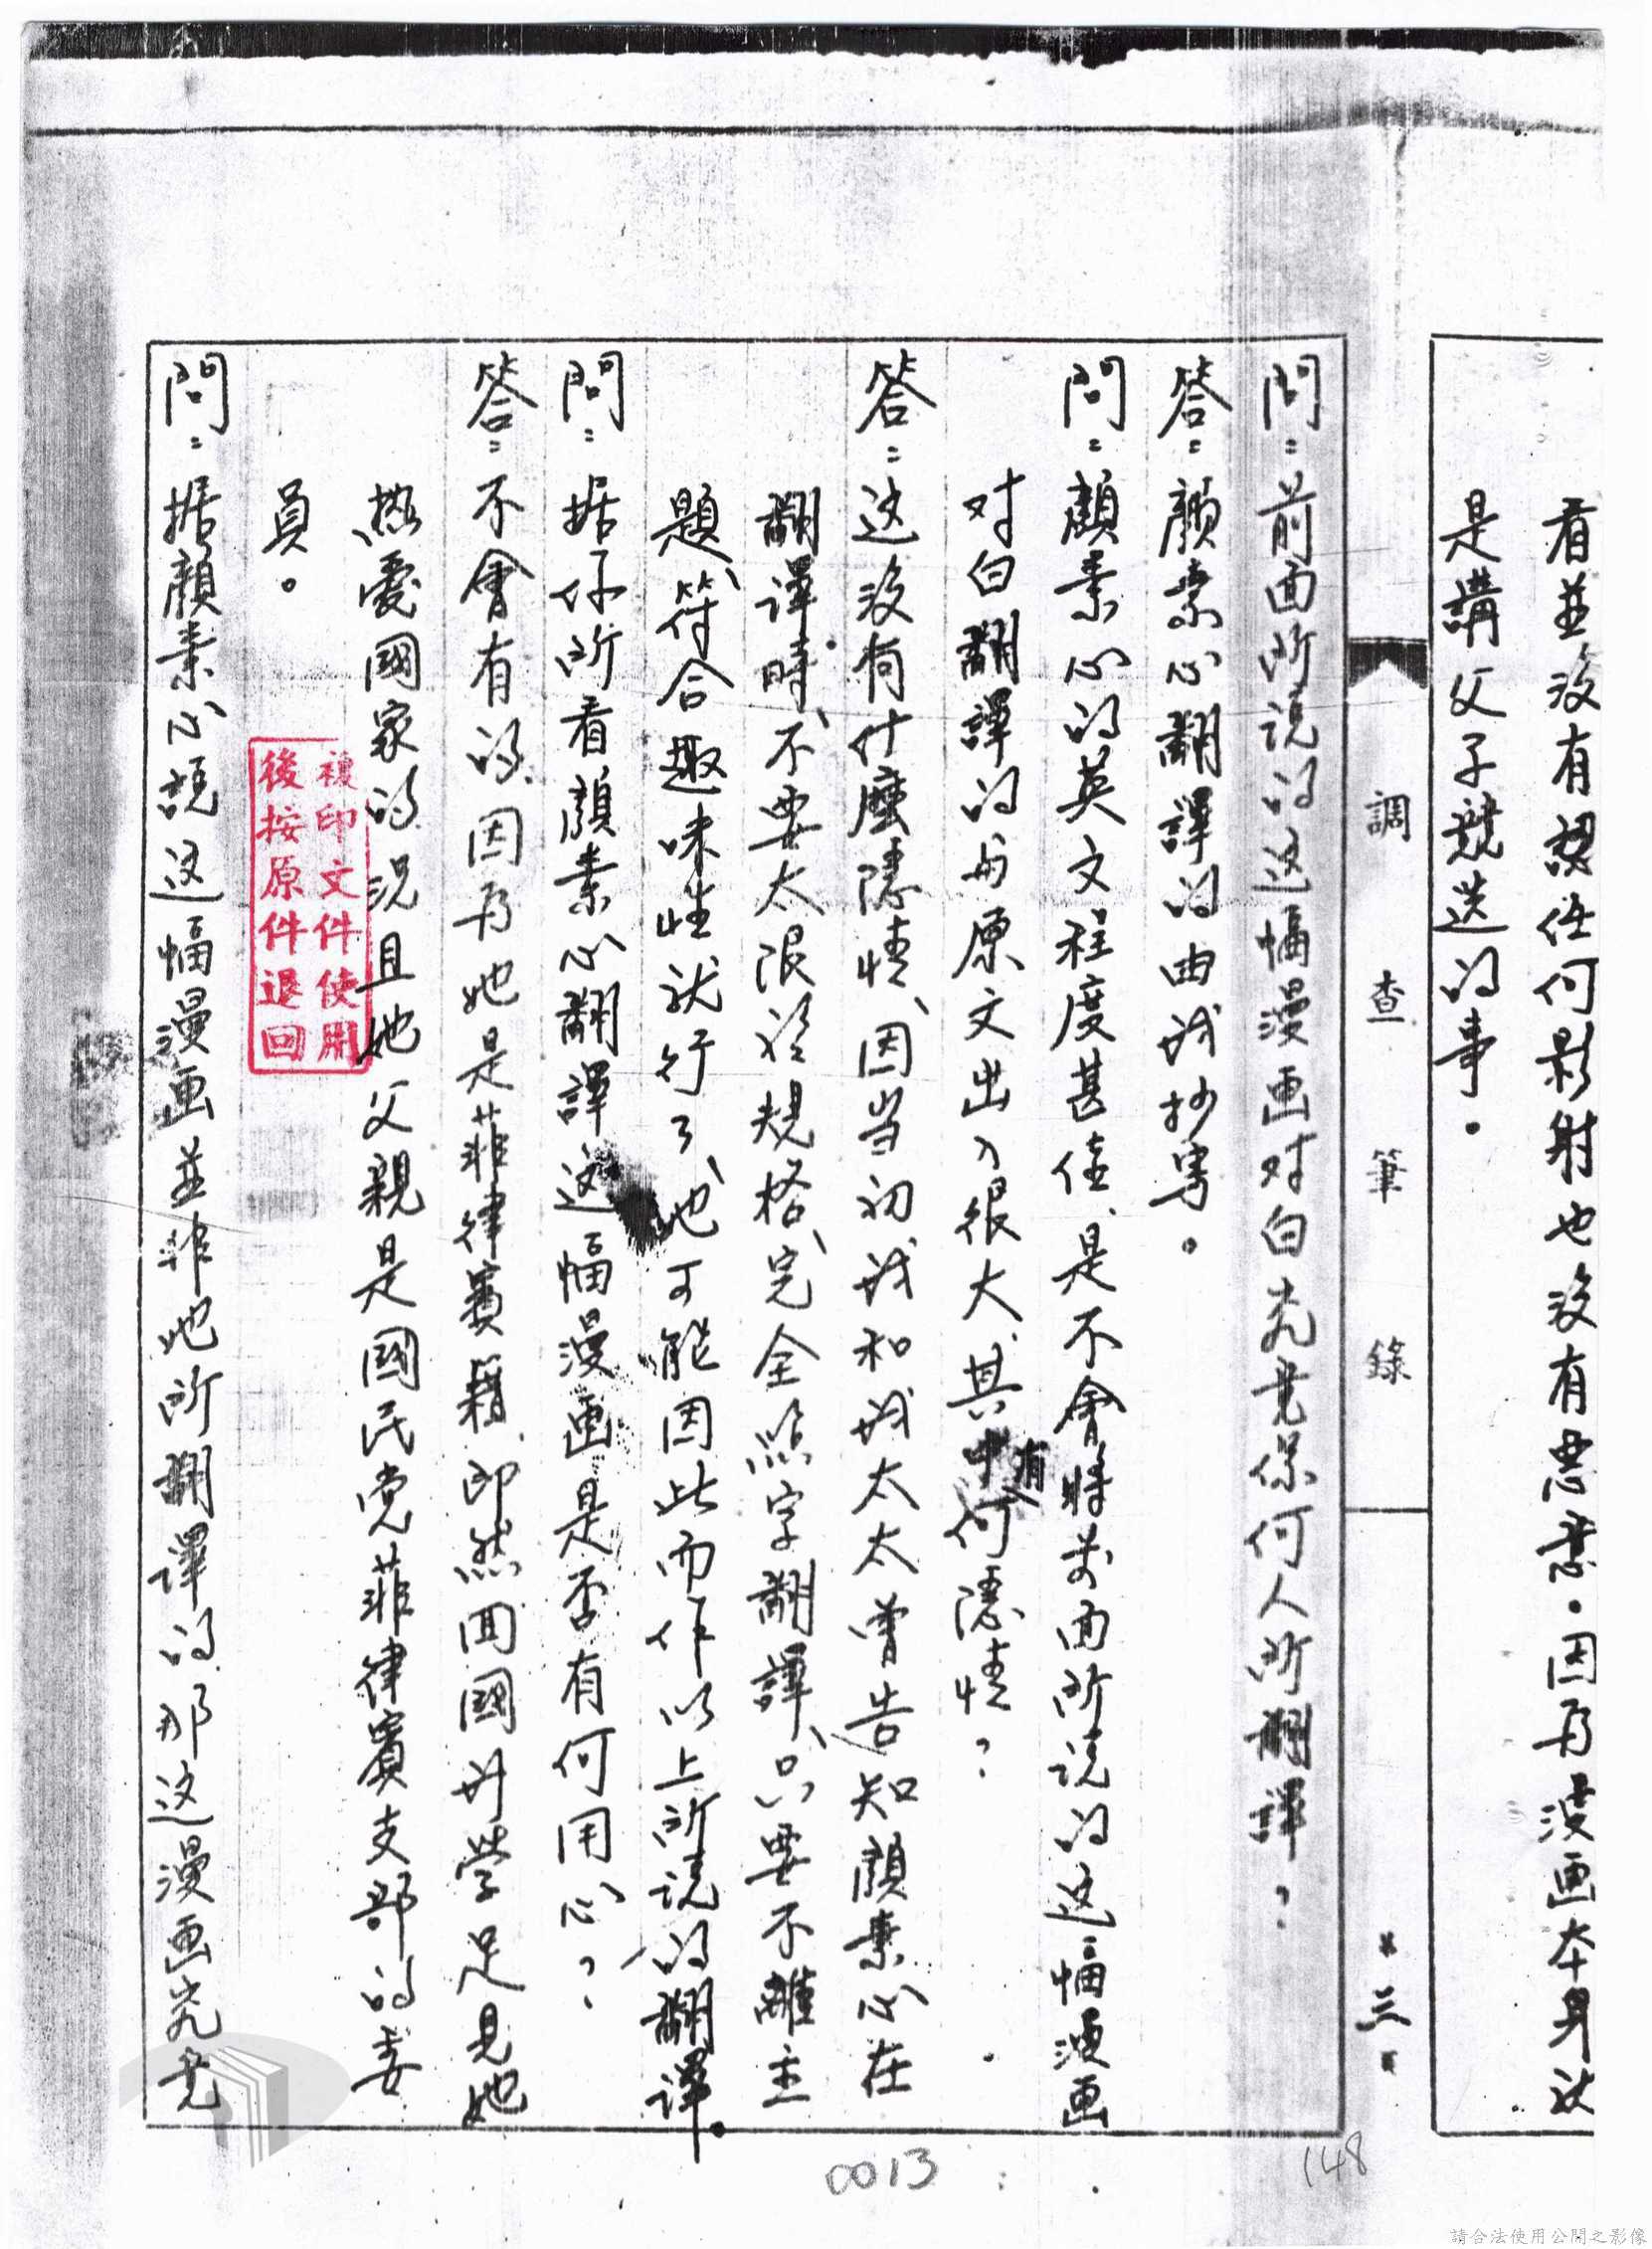 看並没有認任何影射也没有惡意。因为漫画本身就
是講父子競选的事。
調查筆錄
第三頁
問：前面所说的这幅漫画对白究竟係何人所翻譯？
答：顏素心翻譯的由我抄写。
問：顏素心的英文程度甚佳、是不會將前面所说的这幅漫画
对白翻譯的与原文出入很大、其中有何隱情？
答：这没有什麼隱情、因当初我和我太太曾告知顏素心在
翻譯時、不要太限於規格、完全照字翻譯、只要不離主
題、符合趣味性就行了、她可能因此而作以上所说的翻譯。
問：据你所看顏素心翻譯这幅漫画是否有何用心？
答：不會有的、因为她是菲律賓籍、即然回國升學足見她
熱愛國家的况且她父親是國民党菲律賓支部的委
員。
問：据顏素心称这幅漫画並非她所翻譯的、那这漫画究竟
複印文件使用
後按原件退回
0013
148
請合法使用公開之影像